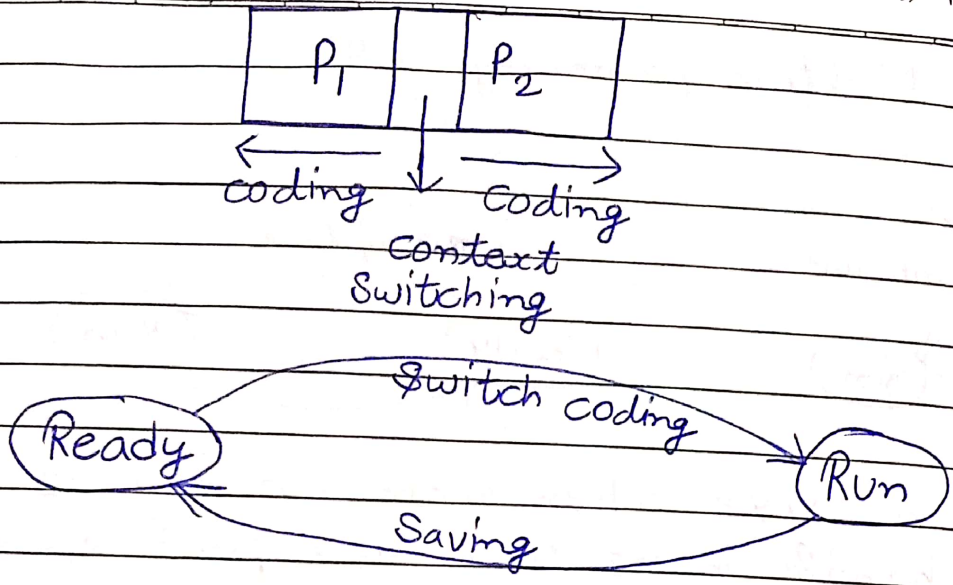 P1 P2
coding Coding
context
Switching
Switch coding
Ready
Run
Saving